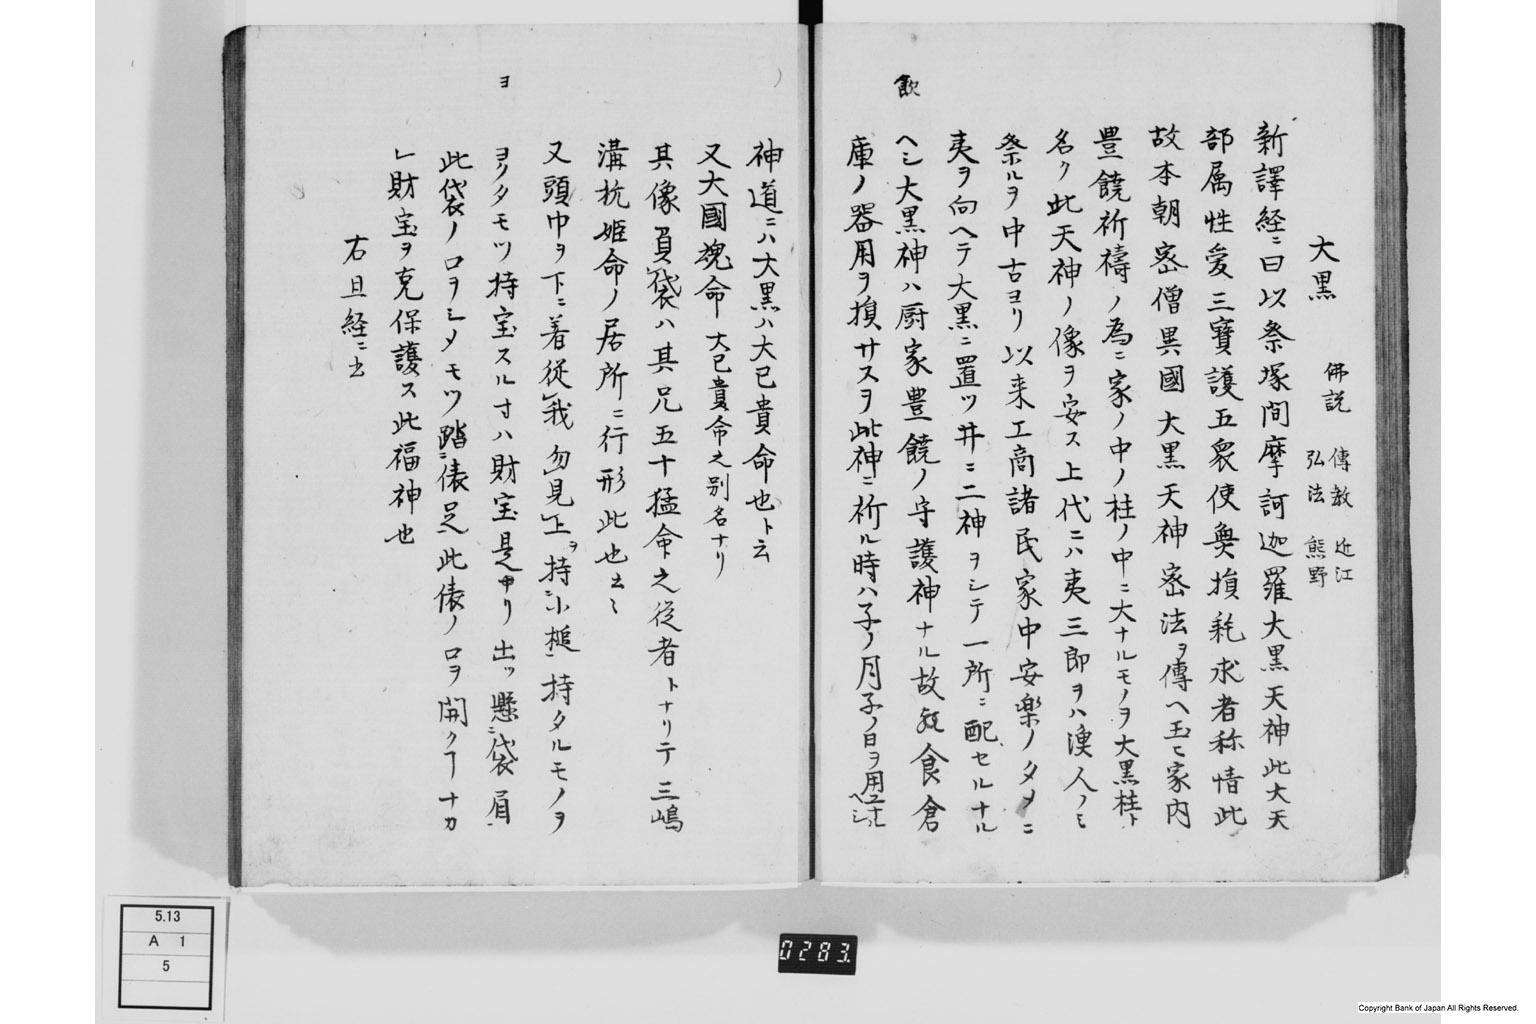 大黒　佛説　傳教　近江
弘法　熊野
新譯経ニ曰以祭塚間摩訶迦羅大黒天神此大天
部属性愛三寳護五衆使無損耗求者称情此
故本朝密僧異國大黒天神密法ヲ傳ヘ玉ヒ家内
豊饒祈禱ノ為ニ家ノ中ノ柱ノ中ニ大ナルモノヲ大黒柱ト
名ク此天神ノ像ヲ安ス上代ニハ夷三郎ヲハ漁人ノミ
祭ルヲ中古ヨリ以来工商諸民家中安楽ノタメニ
夷ヲ向ヘテ大黒ニ置ツ井ニ二神ヲシテ一所ニ配セルナル
飲
ヘシ大黒神ハ厨家豊饒ノ守護神ナル故飲食倉
庫ノ器用ヲ損サスヲ此神ニ祈ル時ハ子ノ月子ノ日ヲ用ユヘシ
神道ニハ大黒ハ大已貴命也ト云
又大國魂命大已貴命之別名ナリ
其像負袋ハ其兄五十猛命之従者トナリテ三嶋
溝杭姫命ノ居所ニ行形此也云々
又頭巾ヲ下ニ着従我勿見上ヲ持小槌持タルモノヲ
ヨ
ヨクタモツ持宝スル寸ハ財宝是ヨリ出ツ懸袋肩
此袋ノ口ヲシメモツ踏俵足此俵ノ口ヲ開クヿナカ
レ財宝ヲ克保護ス此福神也
右旦経ニ云
5.13
A 1
5
0283.
Copyright Bank of Japan All Rights Reserved.